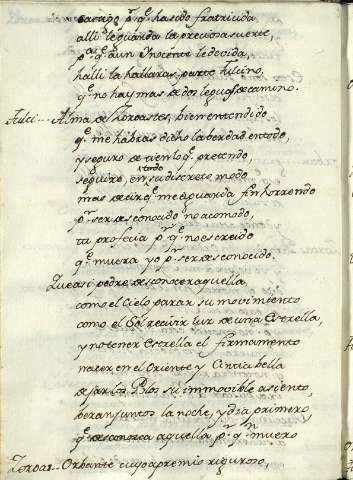 castigo p.r q.e ha sido fratricida
alli le guarda la preciosa suerte,
p.a q.e a un Inocente le dé vida,
halli la hallaras, parte Fulcino,
q.e no hay mas de dos leguas de camino.
Fulci... Alma de Zoroastes, bien entendido
q.e me habras dicho la berdad en todo,
y seguro de tiento q.e pretendo
seguiré, en todo su discreto modo
mas decir q.e me aguarda fin horrendo
p.r ser desconocido no acomodo,
tu profecia p.r q.e no es creido
q.e muera yo p.r ser desconocido.
Que asi podré desconocer aquella
como el Cielo parar su movimiento
como el Sol recivir luz de una Estrella,
y no tener Estrella el firmamento
nacer, en el Oriente y Cintia bella
dejar los Polos su immobible asiento,
beran juntos la noche, y dia primero,
q.e desconozca aquella p.r q.n muero
Zoroas.. Orbante cuyo apremio riguroso,